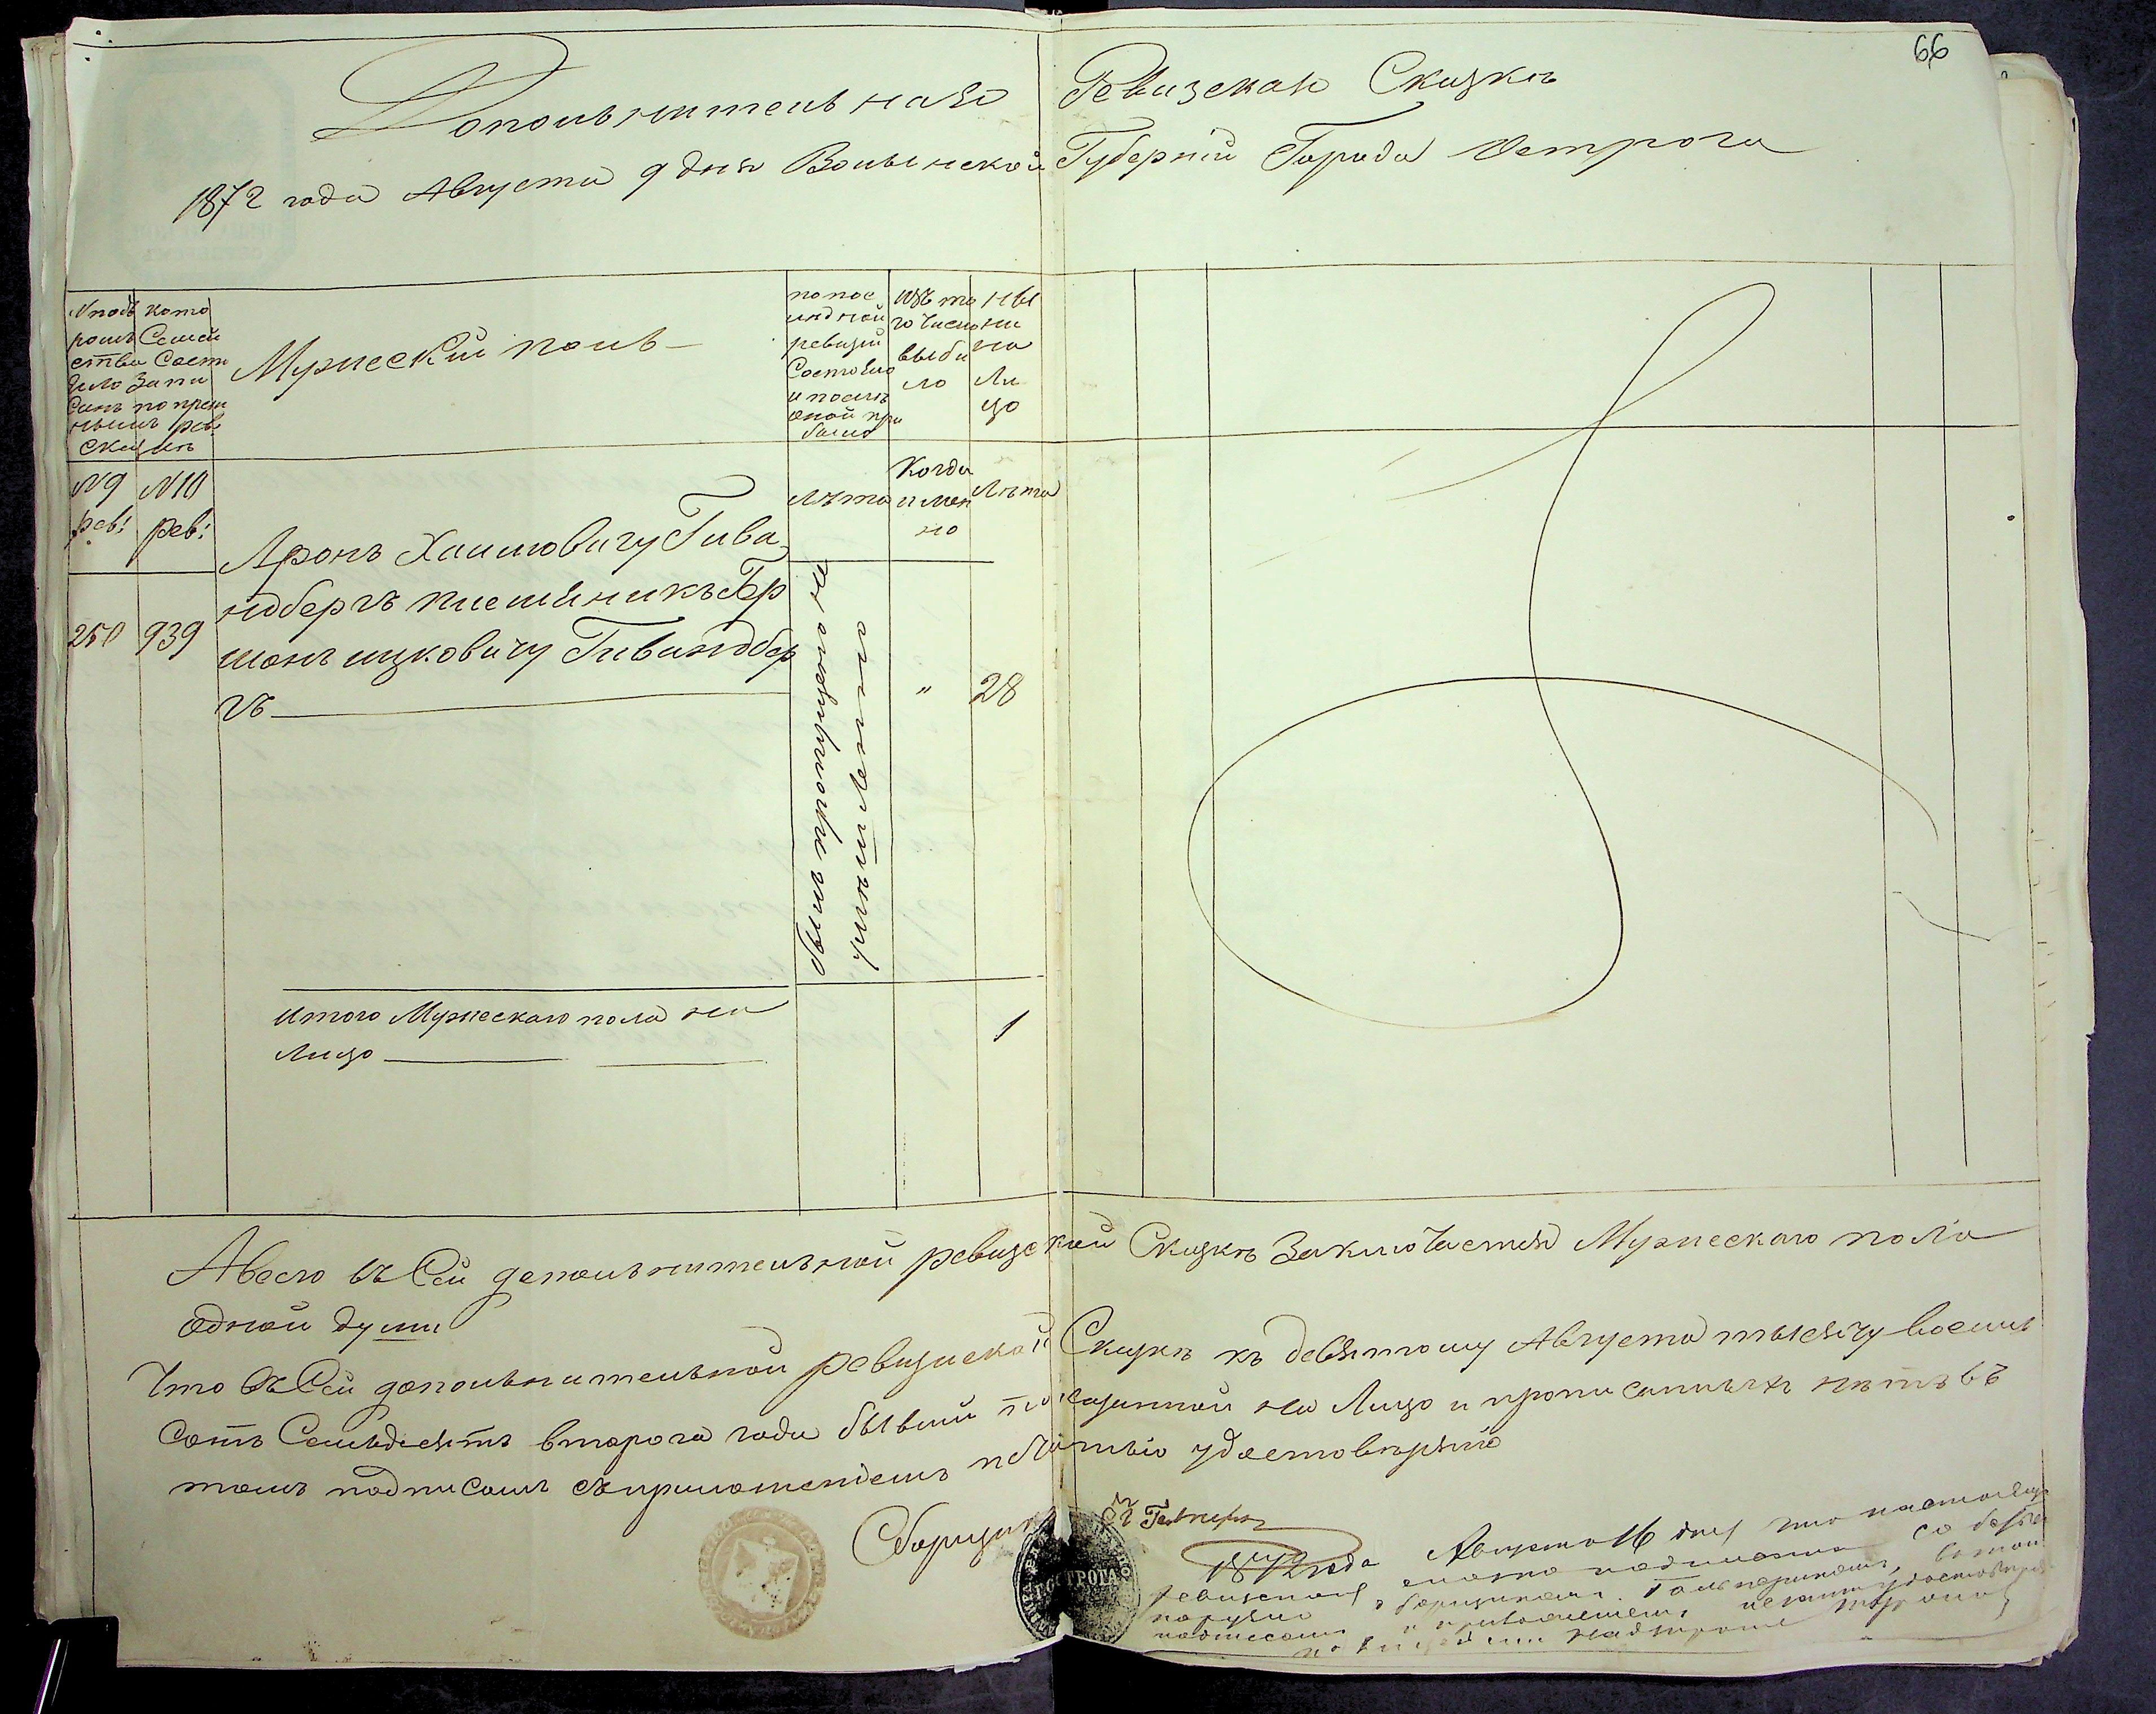 66
Дополнительная Ревизская Сказка
1872 года Августа 9 дня Волынской Губернiи Города Острога
№ подъ кото
рымъ Семей
ство Состо
яло Запи
санъ по преж
нымъ рев:
сказкъ
Мужескiй полъ
по пос
лѣдней
ревизiи
Состояло
и послѣ
оной при
было
изъ то
го числа
выбы
ло
ны
нѣ
на
Ли
цо
№ 9 рев:
№ 10 рев:
Лѣта
Когда
имен
но
Лѣта
250 939
Аронъ Хаимовичу Гива
ндбергъ племѣникъ Гер
шонъ ицковичу Гивандбер
гъ
былъ пропущенъ не
умышленно
" 28
итого Мужескаго пола на
Лицо 1
А всего въ Сей дополнительной ревизской Сказкѣ Заключается Мужескаго пола
одной души
Что въ Сей дополнительной ревизской Сказкѣ къ девятому Августа тысячу восемь
Сотъ Семьдесятъ втораго года бывшiй показанной на Лицо и прописанныхъ нѣтъ въ
томъ подписомъ съ приложенiемъ печатью удостовѣряю
Сборщик
ОСТРОГА
1872 года Августа 16 дня что настоящ
ревизская сказка подписана со
сборщикомъ въ томъ
подписомъ и приложенiемъ печати удостовѣр